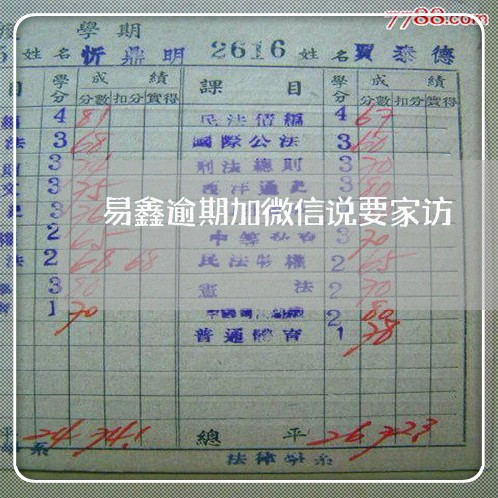 7788.com
學期
姓名 忻鼎明 2616 姓名 賈泰德
目 學分 成績 課目 學分 成績
分數 扣分 實得 分數 扣分 實得
4 81 民法債編 4 67
法 3 68 國際公法 3 60
3 刑法總則 3 70
3 75 西洋通史 3 80
易鑫逾期加微信说要家访
2 65 3 70
法 2 68 68 民法物權 2 65
3 80 憲法 2 70
1 70 2 80
普通體育 1 78
平 24 74.1 總平 26 72.3
系 法律學系